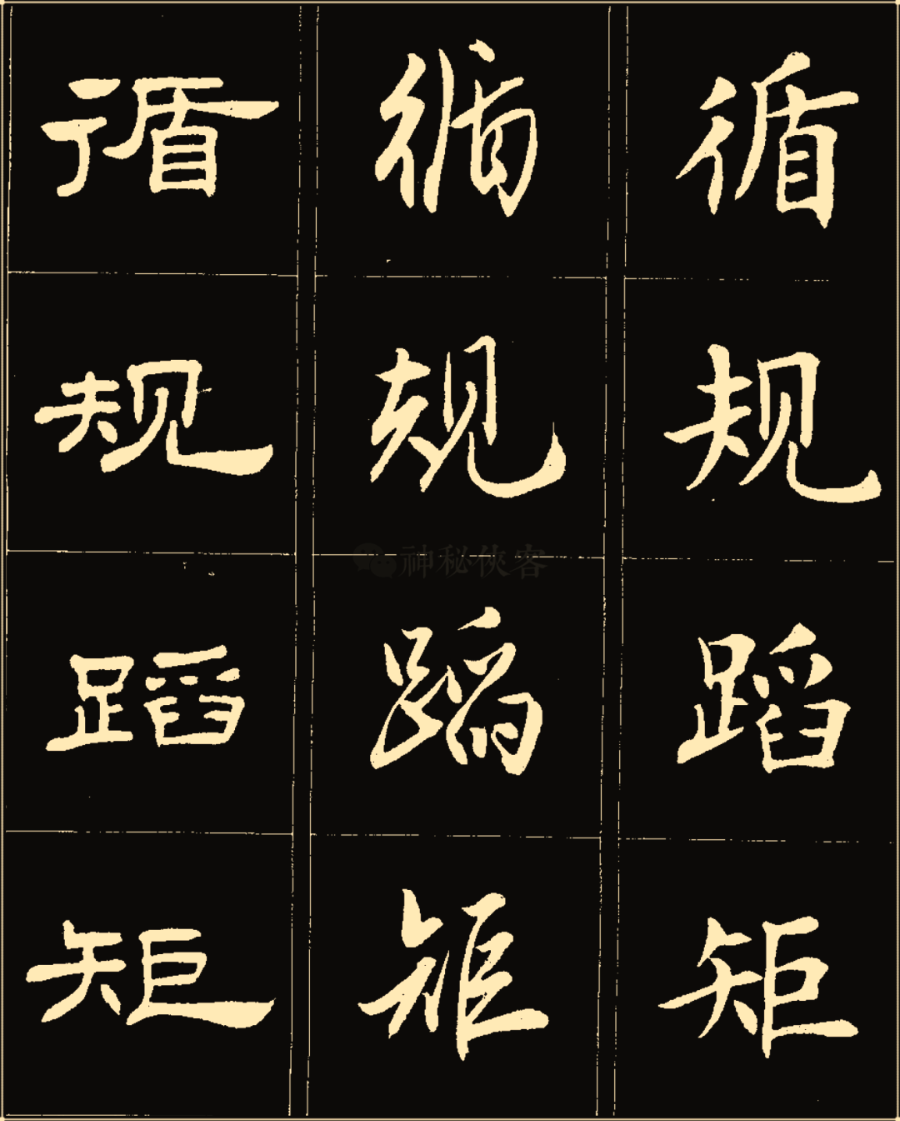 循 循 循
规 规 规
神秘侠客
蹈 蹈 蹈
矩 矩 矩